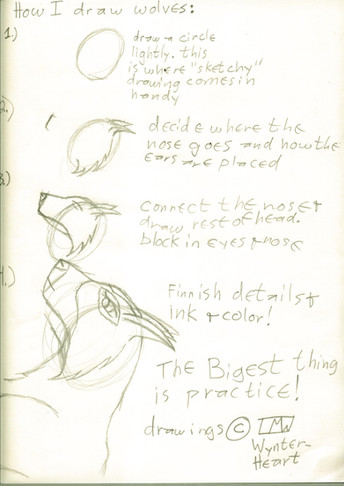 How I draw wolves:
1.)
draw a circle
lightly. this
is where "sketchy"
drawing comes in
handy
2.)
decide where the
nose goes and how the
ears are placed
3.)
Connect the nose &
draw rest of head.
block in eyes & nose
4.)
Finnish details &
ink & color!
The Bigest thing
is practice!
drawings ©
Wynter-
Heart